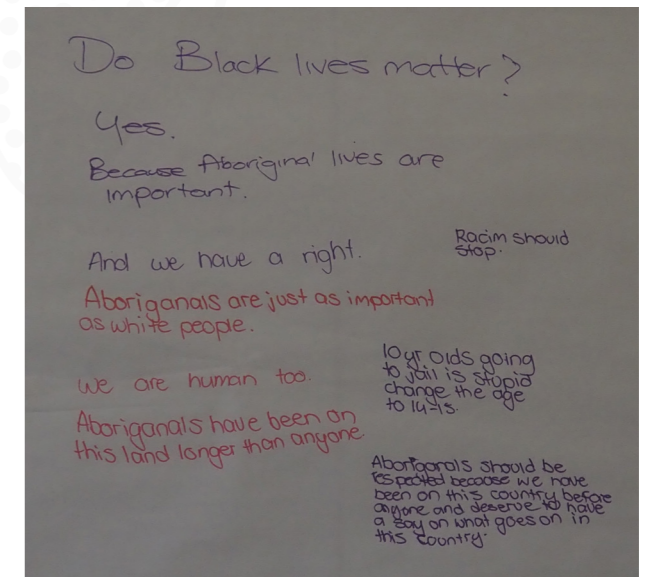 Do Black lives matter?
Yes.
Because Aboriginal lives are
important.
And we have a right.
Racim should
stop.
Aboriganals are just as important
as white people.
We are human too.
10yr olds going
to jail is stupid
change the age
to 14-15.
Aboriganals have been on
this land longer than anyone.
Aboriganals should be
respected because we have
been on this country before
anyone and deserve to have
a say on what goes on in
this country.